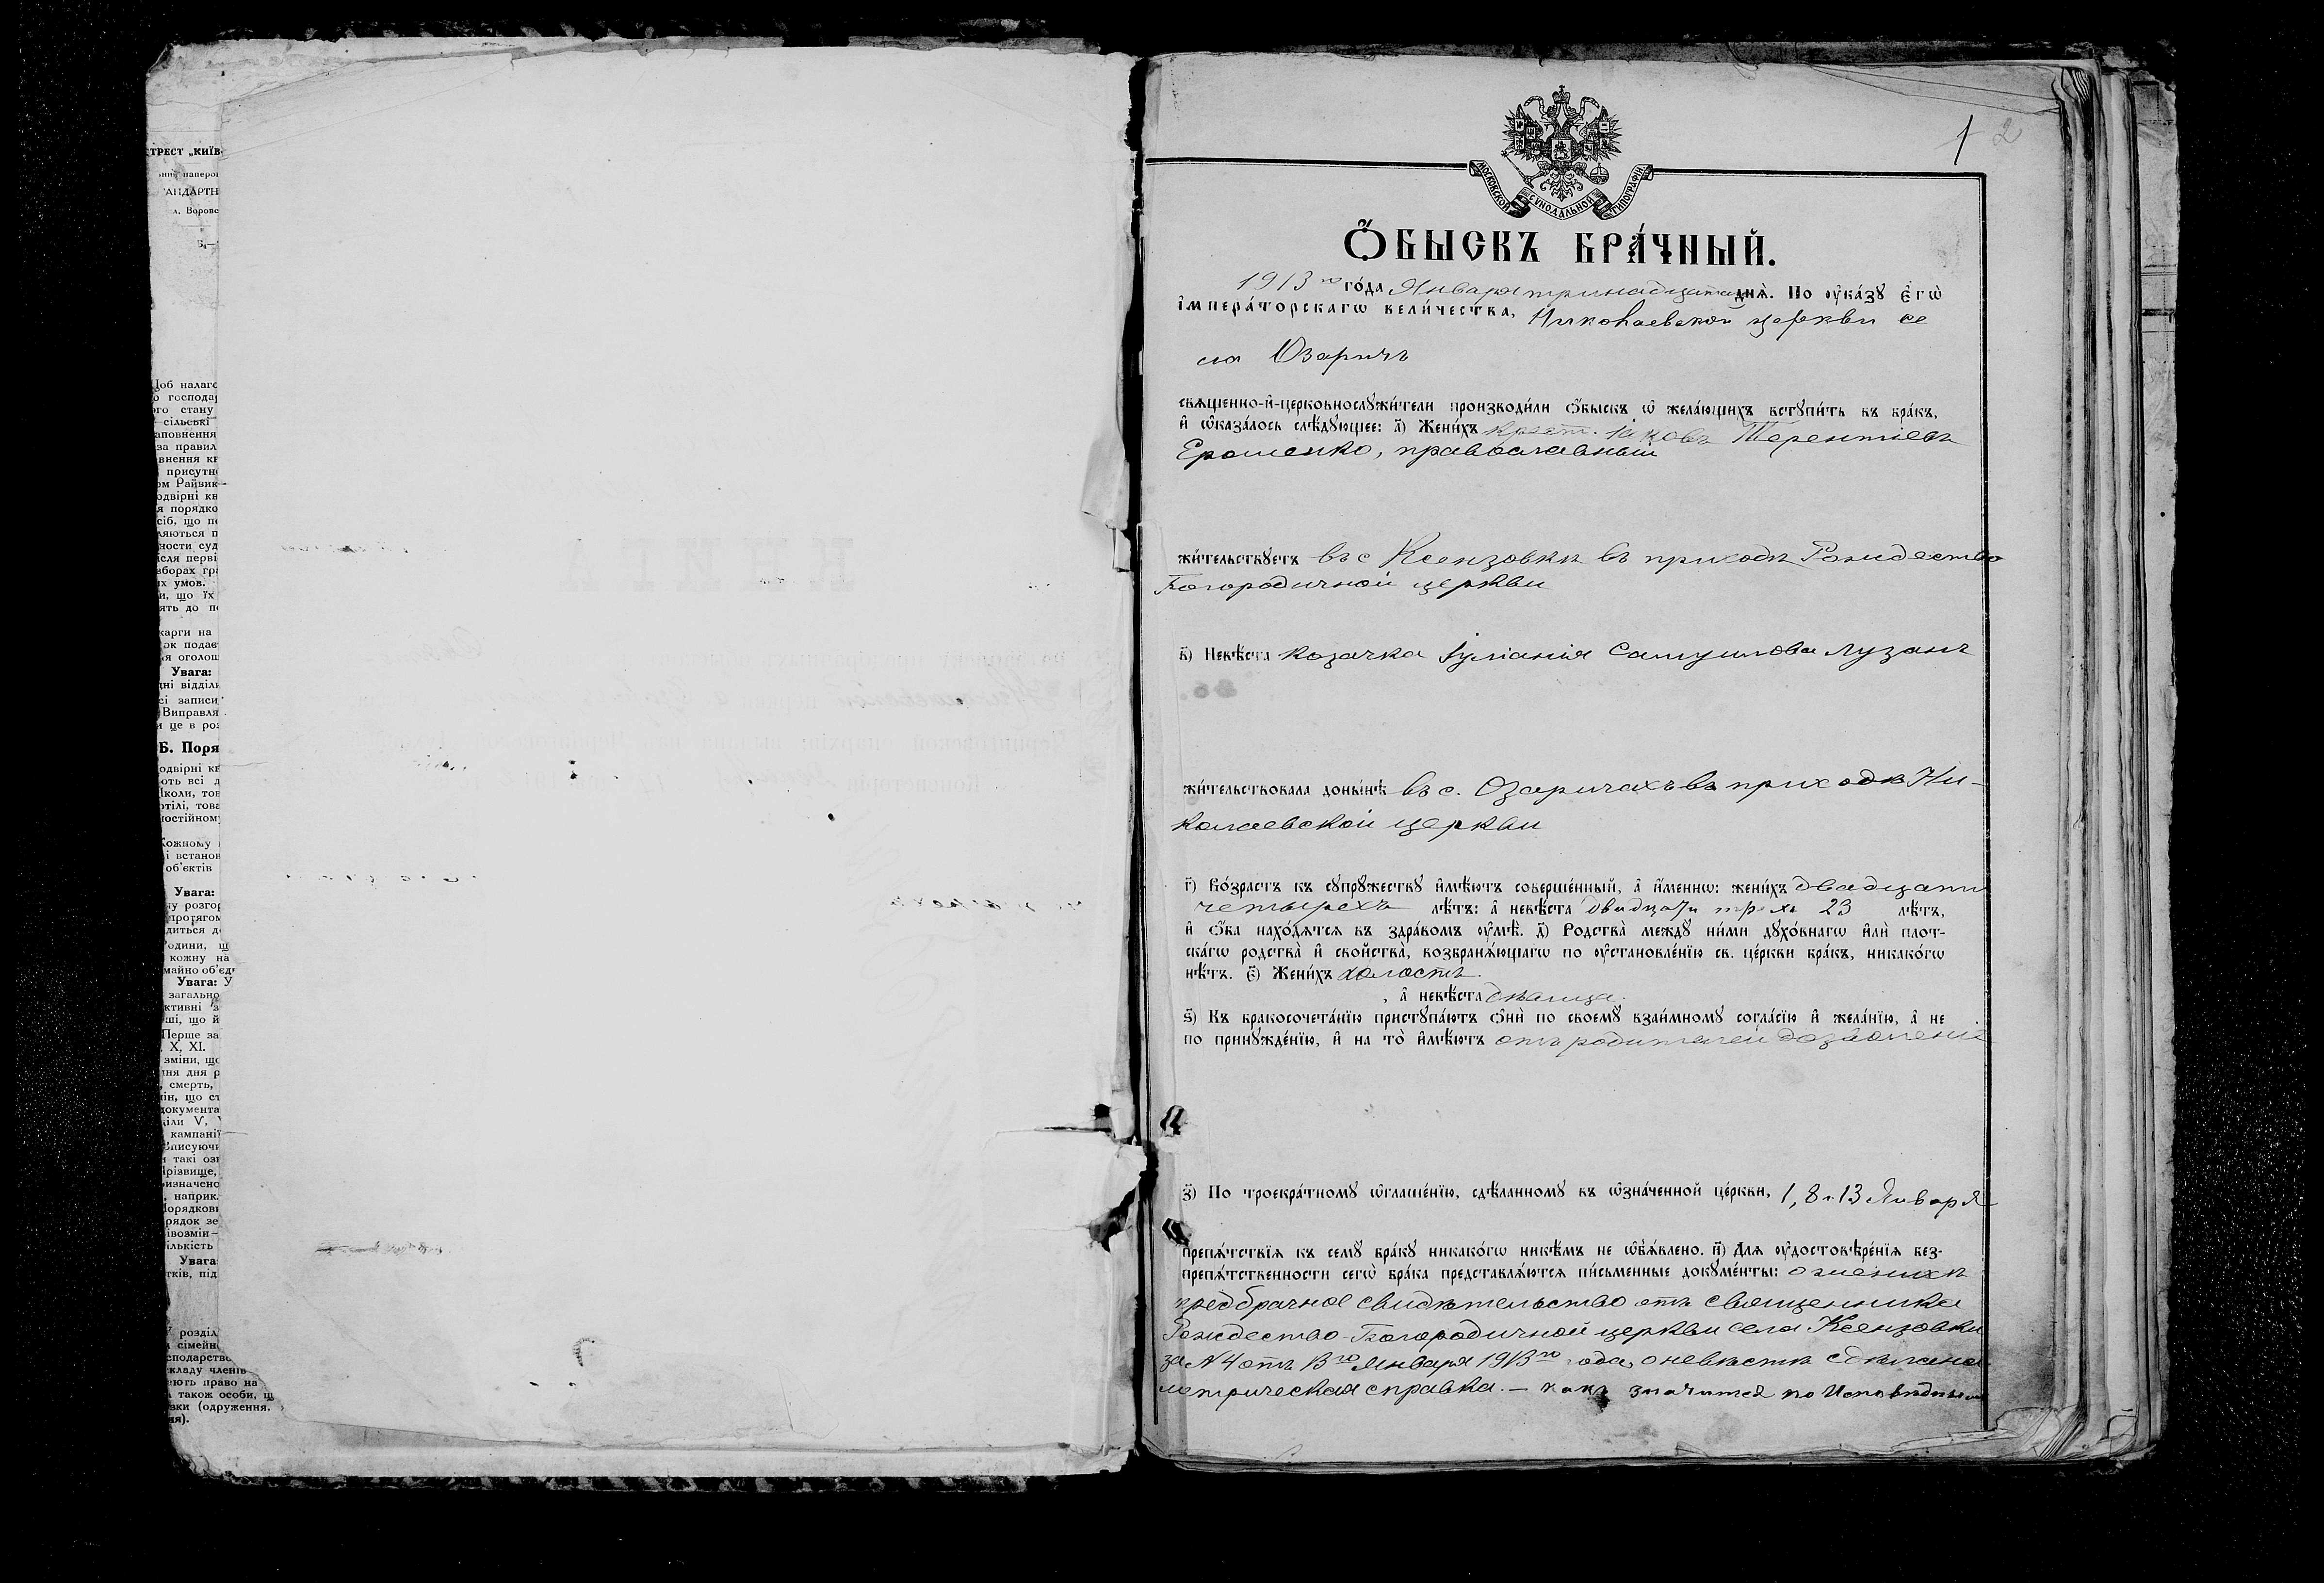 ТРЕСТ „КИЇВ-
АНДАРТН
л. Воровс
Щоб налаго
о господар
ого стану
сільські
аповнення
за правил
внення кв
присутн
ом Райвик-
одвірні кв
я порядко
сіб, що п
ляються п
ности суд
ісля перві
зборах гр
их умов.
и, що їх
ять до п
карги на
ок подає
я оголош
Увага:
дні відділи
сі записи
Виправля
и це в роз
Б. Поря
одвірні кв
оть всі д
Школи, тов
ртілі, това
постійном
Кожному
і встанов
об'єктів
Увага:
ку розгор
протягом
диться д
Родини, щ
кожну на
майно об'єд
Увага: У
загально
ктивні з
ші, що й
Перше за
X, XI.
зміни, що
ня дня р
смерть,
ін, що ст
документа
діли V, V
кампанії
Записуючи
и такі озн
Прізвище,
изначено
наприк.
Порядкови
рядок зе
івозмін—
ількість
Увага
тків, під
У розділ
а сімейн
сподарство
складу членів
ють право на
а також особи, щ
вки (одруження,
ня).
1 2
МОСКОВСКОЙ СѴНОДАЛЬНОЙ ТИПОГРАФІИ
Ѻ҆БЫСКЪ БРА́ЧНЫЙ.
1913го го́да Января тринадцатаго днѧ̀. По ᲂу҆ка́зꙋ Є҆гѡ̀
і҆мпера́торскагѡ вели́чества, Николаевской церкви се
ла Озаричъ
свѧще́нно-и҆-церковнослꙋжи́тели производи́ли ѻ҆́быскъ ѡ҆ жела́ющихъ вступи́ть въ бра́къ,
и҆ ѡ҆каза́лось слѣ́дꙋющее: а҃) Жени́хъ крест. Іаковъ Терентіевъ
Ерошенко, православный
жи́тельствꙋетъ въ с Ксензовки въ приходѣ Рождество
Богородичной церкви
в҃) Невѣ́ста козачка Іуліанія Самуилова Лузанъ
жи́тельствовала доны́нѣ въ с. Озаричахъ въ приходѣ Ни-
колаевской церкви
г҃) Во́зрастъ къ сꙋпрꙋ́жествꙋ и҆мѣ́ютъ соверше́нный, а҆ и҆́меннѡ: жени́хъ двадцати
четырехъ лѣ́тъ: а҆ невѣ́ста двадцати трехъ 23 лѣ́тъ,
и҆ ѻ҆́ба нахо́дѧтсѧ въ здра́вомъ ᲂу҆мѣ̀. д҃) Родства̀ междꙋ̀ ни́ми дꙋхо́внагѡ и҆лѝ плот-
ска́гѡ родства̀ и҆ сво́йства, возбранѧ́ющагѡ по ᲂу҆становле́нїю св. це́ркви бра́къ, никако́гѡ
нѣ́тъ. є҃) Жени́хъ холостъ.
, а҆ невѣ́ста дѣвица.
ѕ҃) Къ бракосочета́нїю пристꙋпа́ютъ ѻ҆нѝ по своемꙋ̀ взаи́мномꙋ согла́сїю и҆ жела́нїю, а҆ не
по принꙋжде́нїю, и҆ на то̀ и҆мѣ́ютъ отъ родителей дозволеніе
з҃) По троекра́тномꙋ ѡ҆глаше́нїю, сдѣ́ланномꙋ въ ѡ҆зна́ченной це́ркви, 1, 8 и 13 Января
препѧ́тствїѧ къ семꙋ̀ бра́кꙋ никако́гѡ никѣ́мъ не ѡ҆б̾ѧ́влено. и҃) Длѧ ᲂу҆достовѣре́нїѧ без-
препѧ́тственности сегѡ̀ бра́ка представлѧ́ютсѧ пи́сьменные докꙋме́нты: о женихѣ
предбрачное свидѣтельство отъ священника
Рождество-Богородичной церкви села Ксензовки
за № 4 отъ 13го Января 1913го года, о невѣстѣ сдѣлана
метрическая справка. — какъ значится по Исповѣднымъ